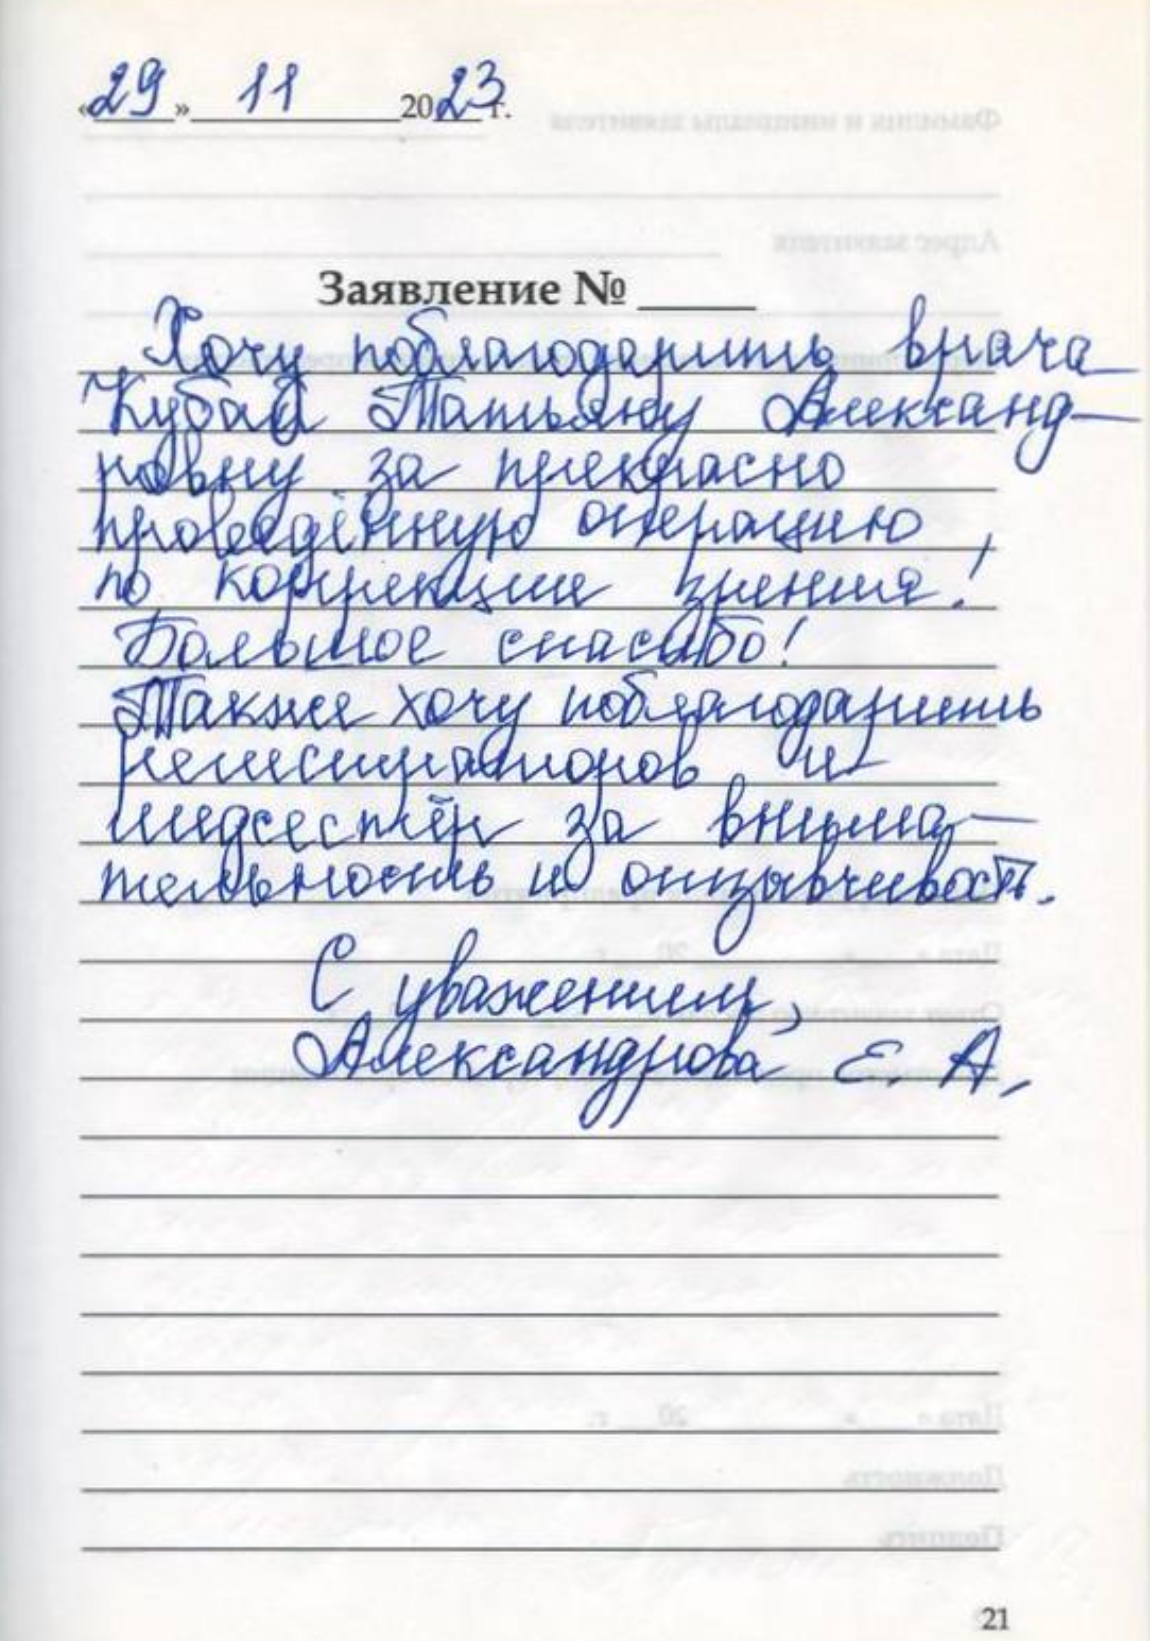 «29» 11 2023 г.
Заявление № _____
Хочу поблагодарить врача
Татьяну Александ-
ровну за прекрасно
проведённую операцию
по коррекции зрения!
Большое спасибо!
Также хочу поблагодарить
регистраторов и
медсестёр за внима-
тельность и отзывчивость.
С уважением,
Александрова Е. А.
21